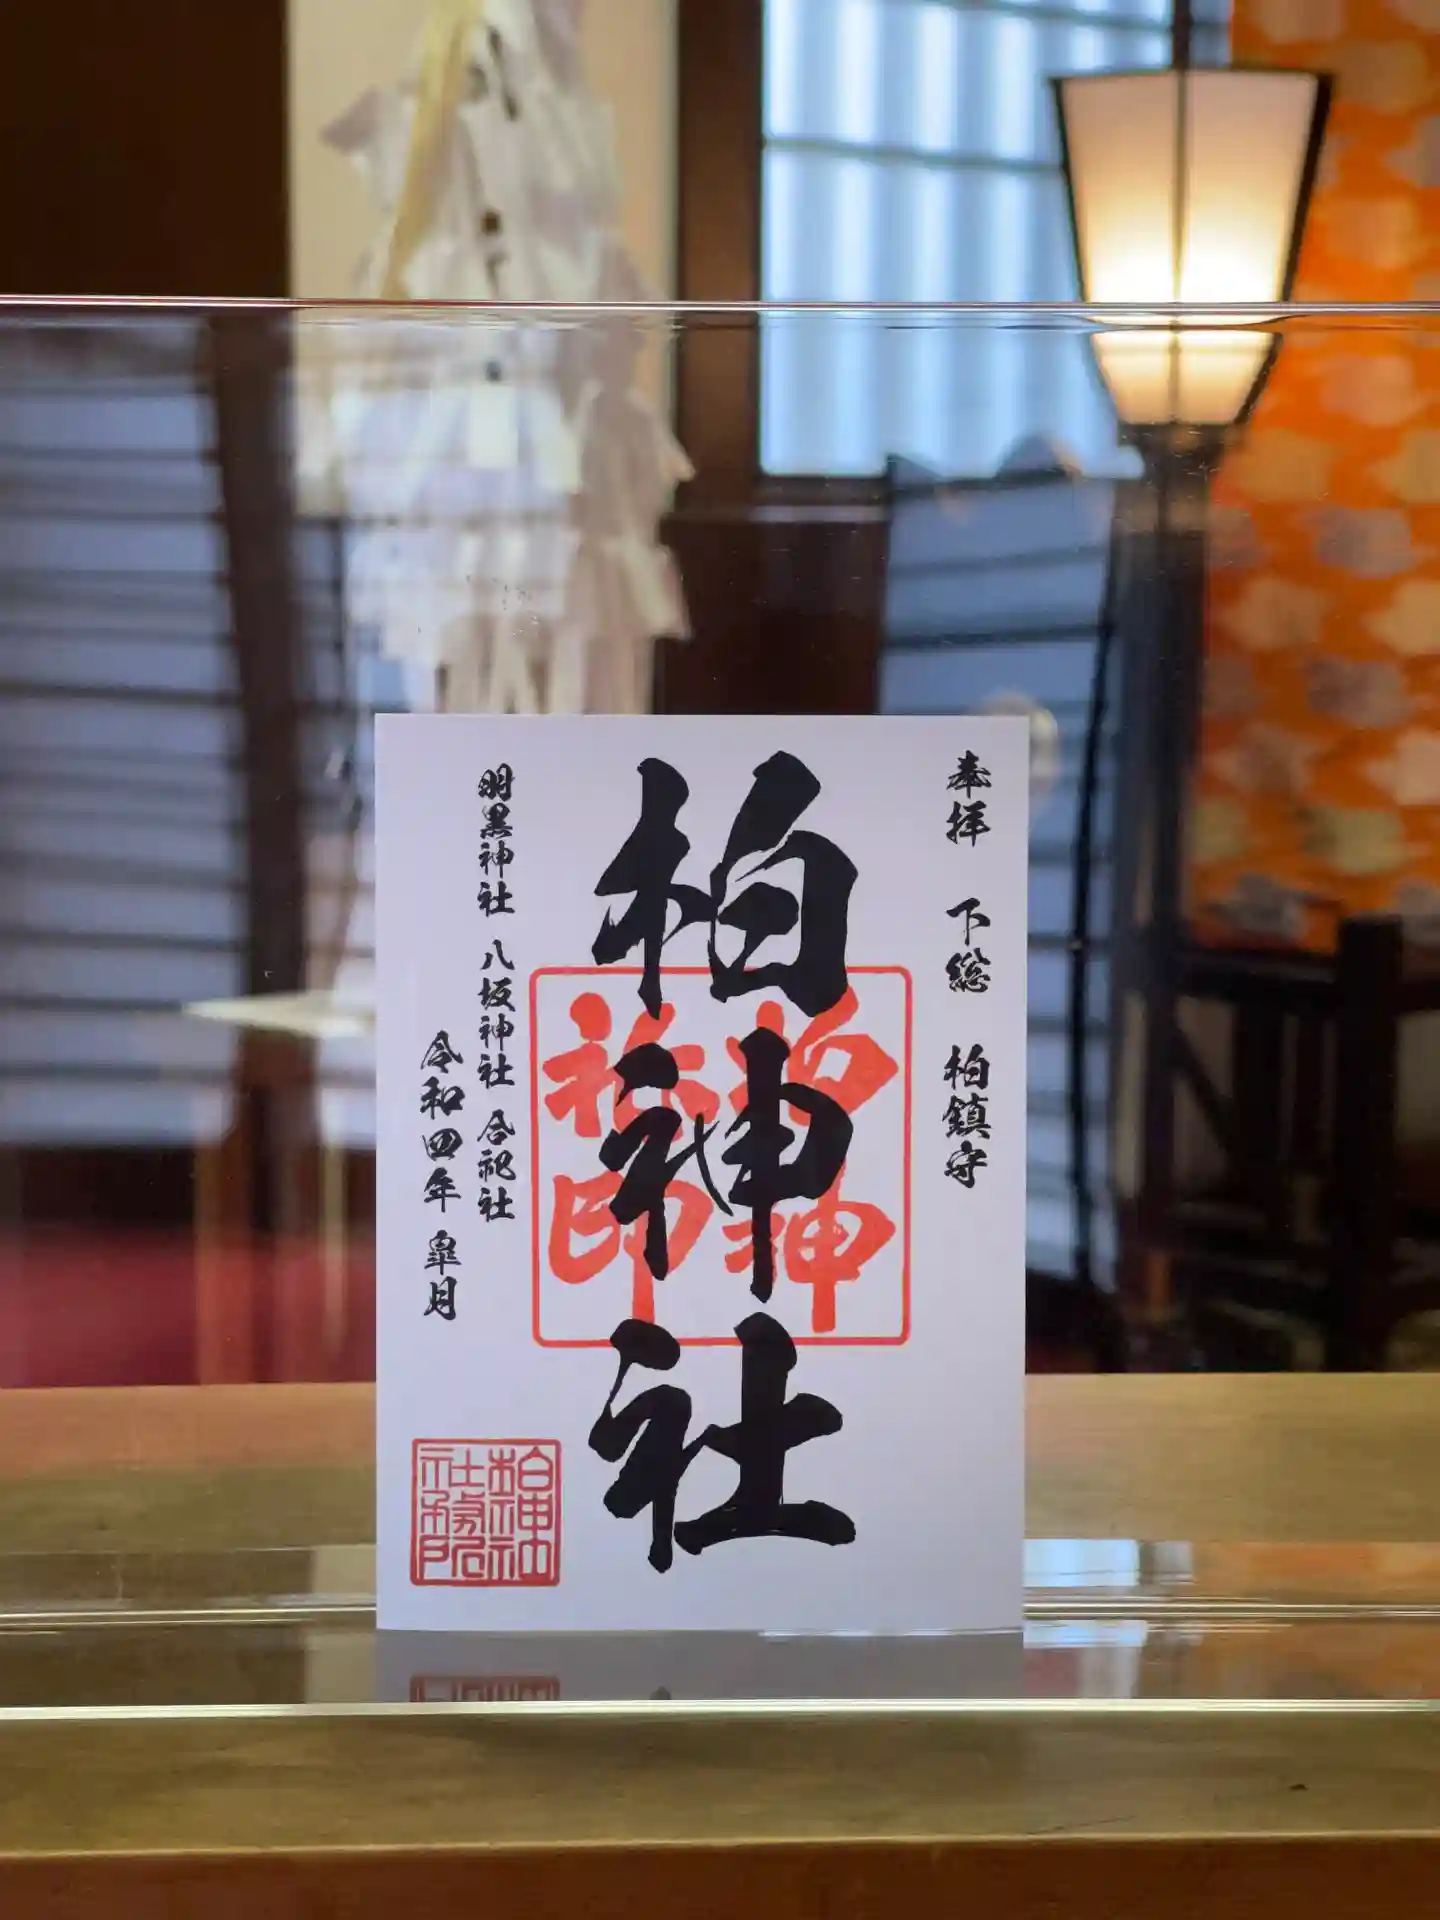 奉拝 下総 柏鎮守
柏神社
羽黒神社 八坂神社 合祀社
令和四年 皐月
柏神社
社務所